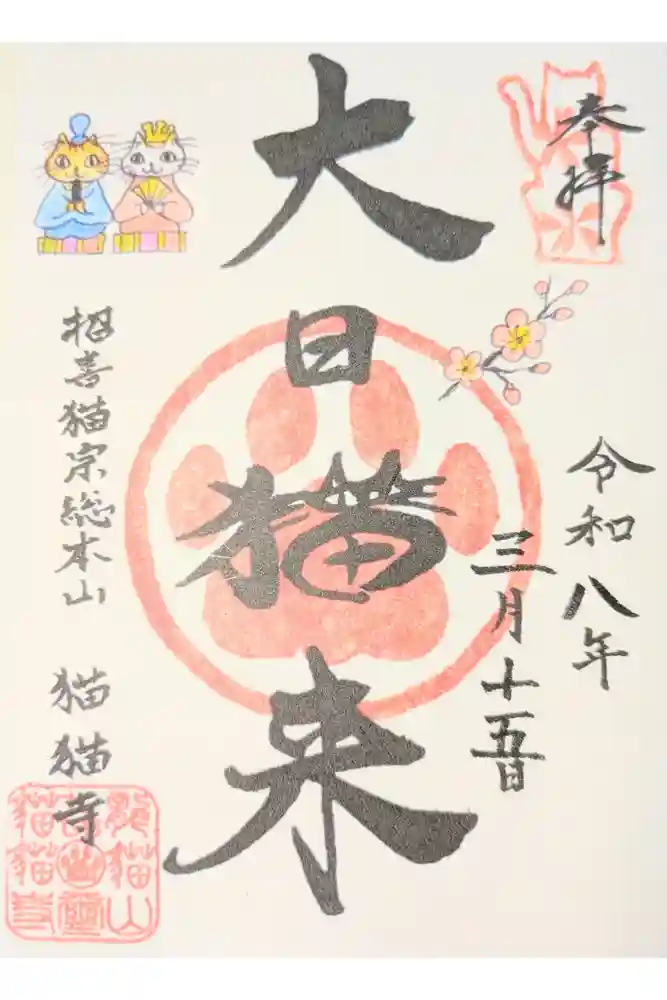 奉拝
令和八年
三月十五日
大日猫来
招喜猫宗総本山
猫猫寺